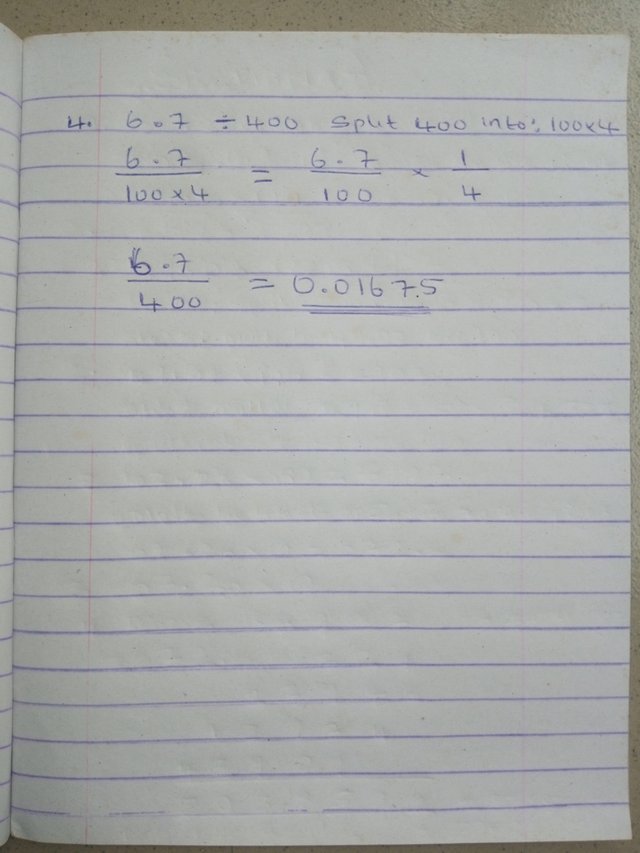 4. 6.7 ÷ 400 Split 400 into: 100×4
6.7 / 100×4 = 6.7 / 100 × 1 / 4
6.7 / 400 = 0.01675